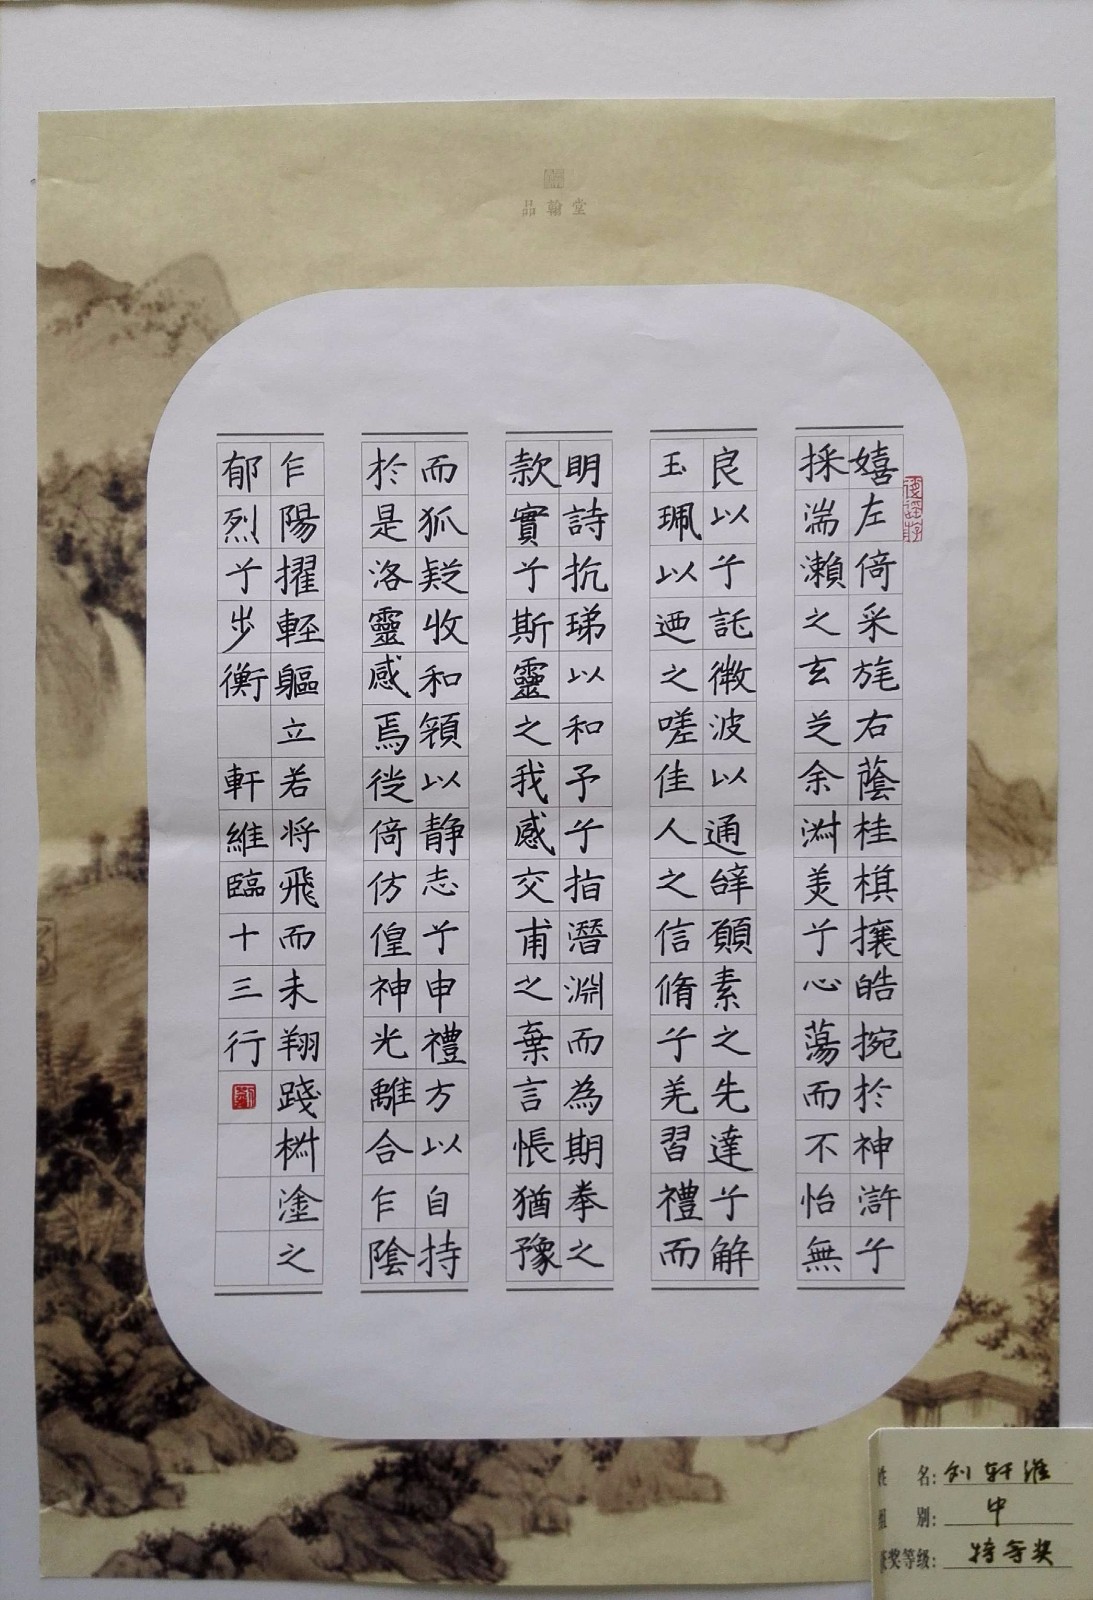 品翰堂
嬉左倚采旄右蔭桂棋攘皓捥於神滸兮
採湍瀨之玄芝余淋美兮心蕩而不怡無
良以兮託微波以通辝願素之先達兮解
玉珮以迺之嗟佳人之信脩兮羌習禮而
明詩抗珶以和予兮指潛淵而為期拳之
款實兮斯靈之我感交甫之棄言悵猶豫
而狐疑收和頟以静志兮申禮方以自持
於是洛靈感焉徙倚仿偟神光離合乍陰
乍陽擢輕軀立若将飛而未翔踐椒塗之
郁烈兮步衡
軒維臨十三行
姓名:刘轩维
组别:中
获奖等级:特等奖